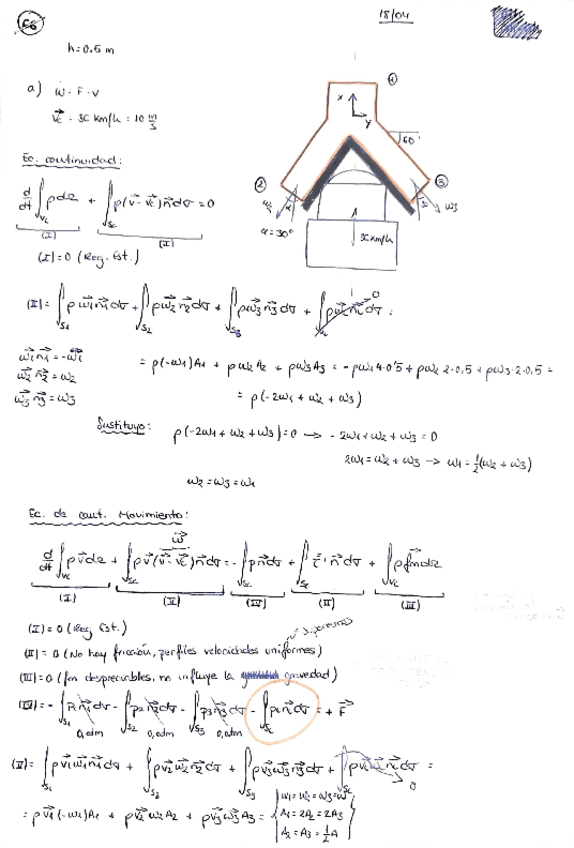 68
18/04
h=0.5 m
a) Ẇ = F · v
v⃗c = 36 km/h = 10 m/s
① 
x
y
60°
Ec. continuidad:
② ③
w2 α α w3
α = 30°
36 km/h
d/dt ∫Vc ρdΩ + ∫Sc ρ(v⃗ - v⃗c)n⃗dσ = 0
(I) (II)
(I) = 0 (Reg. Est.)
(II) = ∫S1 ρw⃗1n⃗1dσ + ∫S2 ρw⃗2n⃗2dσ + ∫S3 ρw⃗3n⃗3dσ + ∫Sc ρw⃗cn⃗cdσ 0 =
w⃗1 n⃗1 = -w1
w⃗2 n⃗2 = w2
w⃗3 n⃗3 = w3
= ρ(-w1)A1 + ρw2A2 + ρw3A3 = -ρw1 4·0'5 + ρw2 2·0,5 + ρw3·2·0,5 =
= ρ(-2w1 + w2 + w3)
Sustituyo: ρ(-2w1 + w2 + w3) = 0 → -2w1 + w2 + w3 = 0
2w1 = w2 + w3 → w1 = ½(w2 + w3)
w2 = w3 = w1
Ec. de cant. Movimiento:
w⃗
d/dt ∫Vc ρv⃗dΩ + ∫Sc ρv⃗(v⃗ - v⃗c)n⃗dσ = -∫Sc pn⃗dσ + ∫Sc τ̿'·n⃗dσ + ∫Vc ρf⃗mdΩ
(I) (V) (IV) (II) (III)
(I) = 0 (Reg. Est.)
(II) = 0 (No hay fricción, perfiles velocidades uniformes)
(III) = 0 (fm despreciables, no influye la gravedad)
(IV) = -∫S1 p1n⃗1dσ - ∫S2 p2n⃗2dσ - ∫S3 p3n⃗3dσ - ∫Sc pcn⃗cdσ = + F⃗
0, atm 0, atm 0, atm
(V) = ∫S1 ρv⃗1w⃗1n⃗1dσ + ∫S2 ρv⃗2w⃗2n⃗2dσ + ∫S3 ρv⃗3w⃗3n⃗3dσ + ∫Sc ρv⃗cw⃗cn⃗cdσ 0 =
= ρv⃗1(-w1)A1 + ρv⃗2w2A2 + ρv⃗3w3A3 = { w1 = w2 = w3 = w
A1 = 2A2 = 2A3
A2 = A3 = ½A }